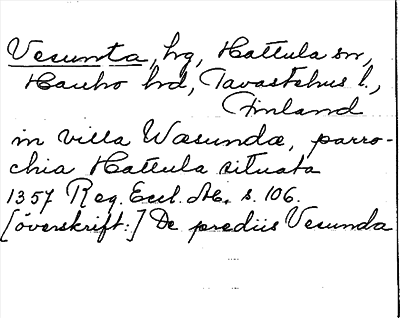 Vesunta, hg, Hattula sn,
Hauho hd, Tavastehus l.,
Finland
in villa Wæsundæ, parro-
chia Hattula situata
1357 Reg. Eccl. Ab. s. 106.
[överskrift:] De prediis Vesunda